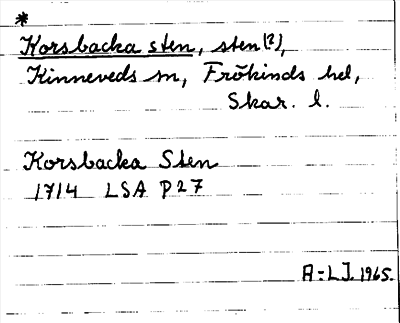 *
Korsbacka sten, sten(?),
Kinneveds sn, Frökinds hd,
Skar. l.
Korsbacka Sten
1714 LSA P27
A-LJ. 1965.